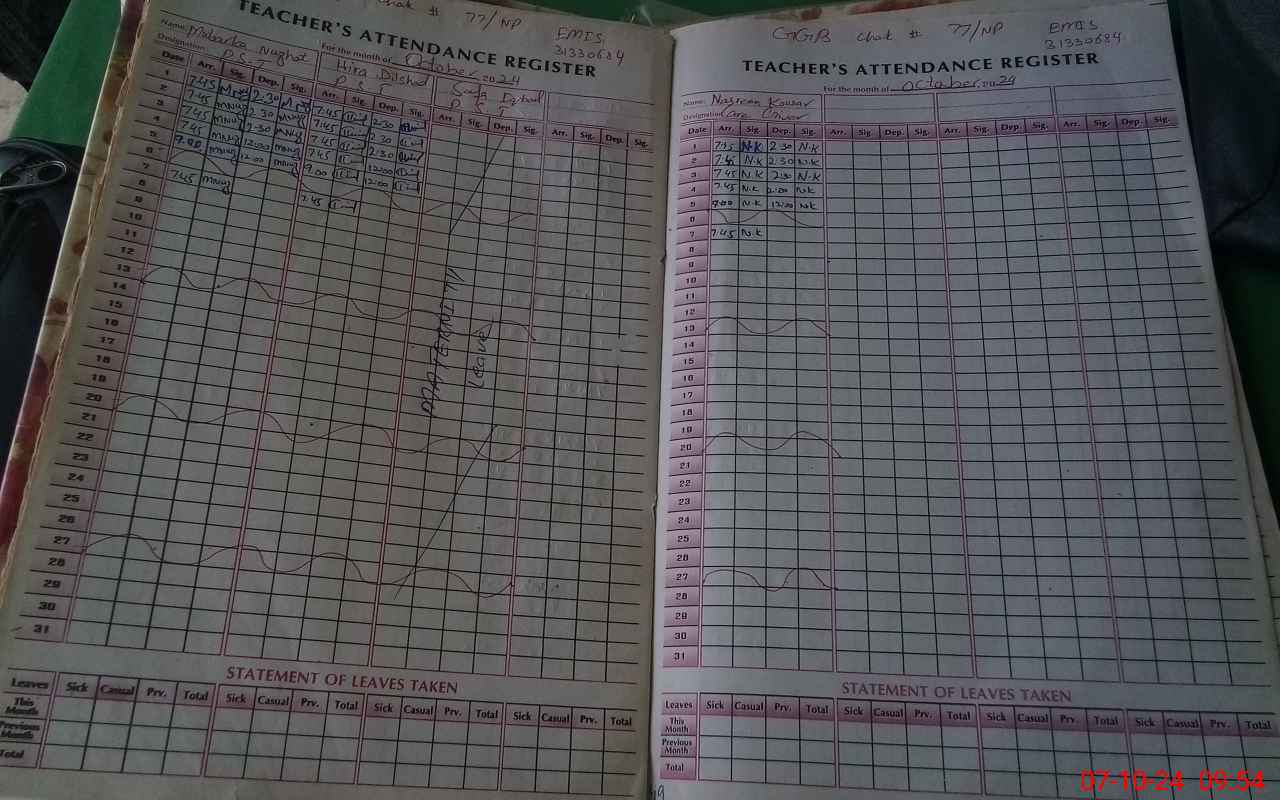 Chak # 77/NP EMIS
31330684
TEACHER'S ATTENDANCE REGISTER
Name: Mubarka Nughat For the month of October 2024
Designation: P.S.T Hira Dilshad
P.S.T P.S.T
Date Arr. Sig. Dep. Sig. Arr. Sig. Dep. Sig. Arr. Sig. Dep. Sig. Arr. Sig. Dep. Sig.
1 7:45 2:30 7:45 2:30
2 7:45 MNug 2:30 MNug 7:45 2:30
3 7:45 MNug 2:30 MNug 7:45 2:30
4 7:45 MNug 12:00 MNug 7:45 12:00
5 MNug 12:00 MNug 12:00
6
7 7:45 MNug 7:45
8
9
10
11
12
13
14
15
16
17
18
19
20
21
22
23
24
25
26
27
28
29
30
31
MATERNITY
Leave
STATEMENT OF LEAVES TAKEN
Leaves Sick Casual Prv. Total Sick Casual Prv. Total Sick Casual Prv. Total Sick Casual Prv. Total
This Month
Previous Month
Total
GGPS Chak # 77/NP EMIS
31330684
TEACHER'S ATTENDANCE REGISTER
For the month of October 2024
Name: Nasreen Kousar
Designation: Care Giver
Date Arr. Sig. Dep. Sig. Arr. Sig. Dep. Sig. Arr. Sig. Dep. Sig. Arr. Sig. Dep. Sig.
1 7:45 N.K 2:30 N.K
2 7:45 N.K 2:30 N.K
3 7:45 N.K 2:30 N.K
4 7:45 N.K N.K
5 N.K 12:00 N.K
6
7 7:45 N.K
8
9
10
11
12
13
14
15
16
17
18
19
20
21
22
23
24
25
26
27
28
29
30
31
STATEMENT OF LEAVES TAKEN
Leaves Sick Casual Prv. Total Sick Casual Prv. Total Sick Casual Prv. Total Sick Casual Prv. Total
This Month
Previous Month
Total
07-10-24 09:54